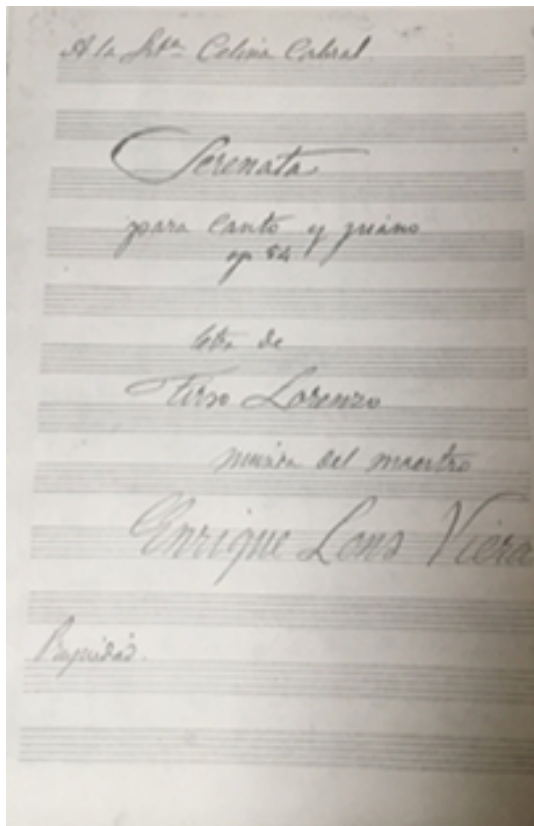 A la Srta. Celina Cabral.
Serenata
para Canto y piano
op 54
letra de
Tirso Lorenzo
música del maestro
Enrique Lons Viera
Propiedad.